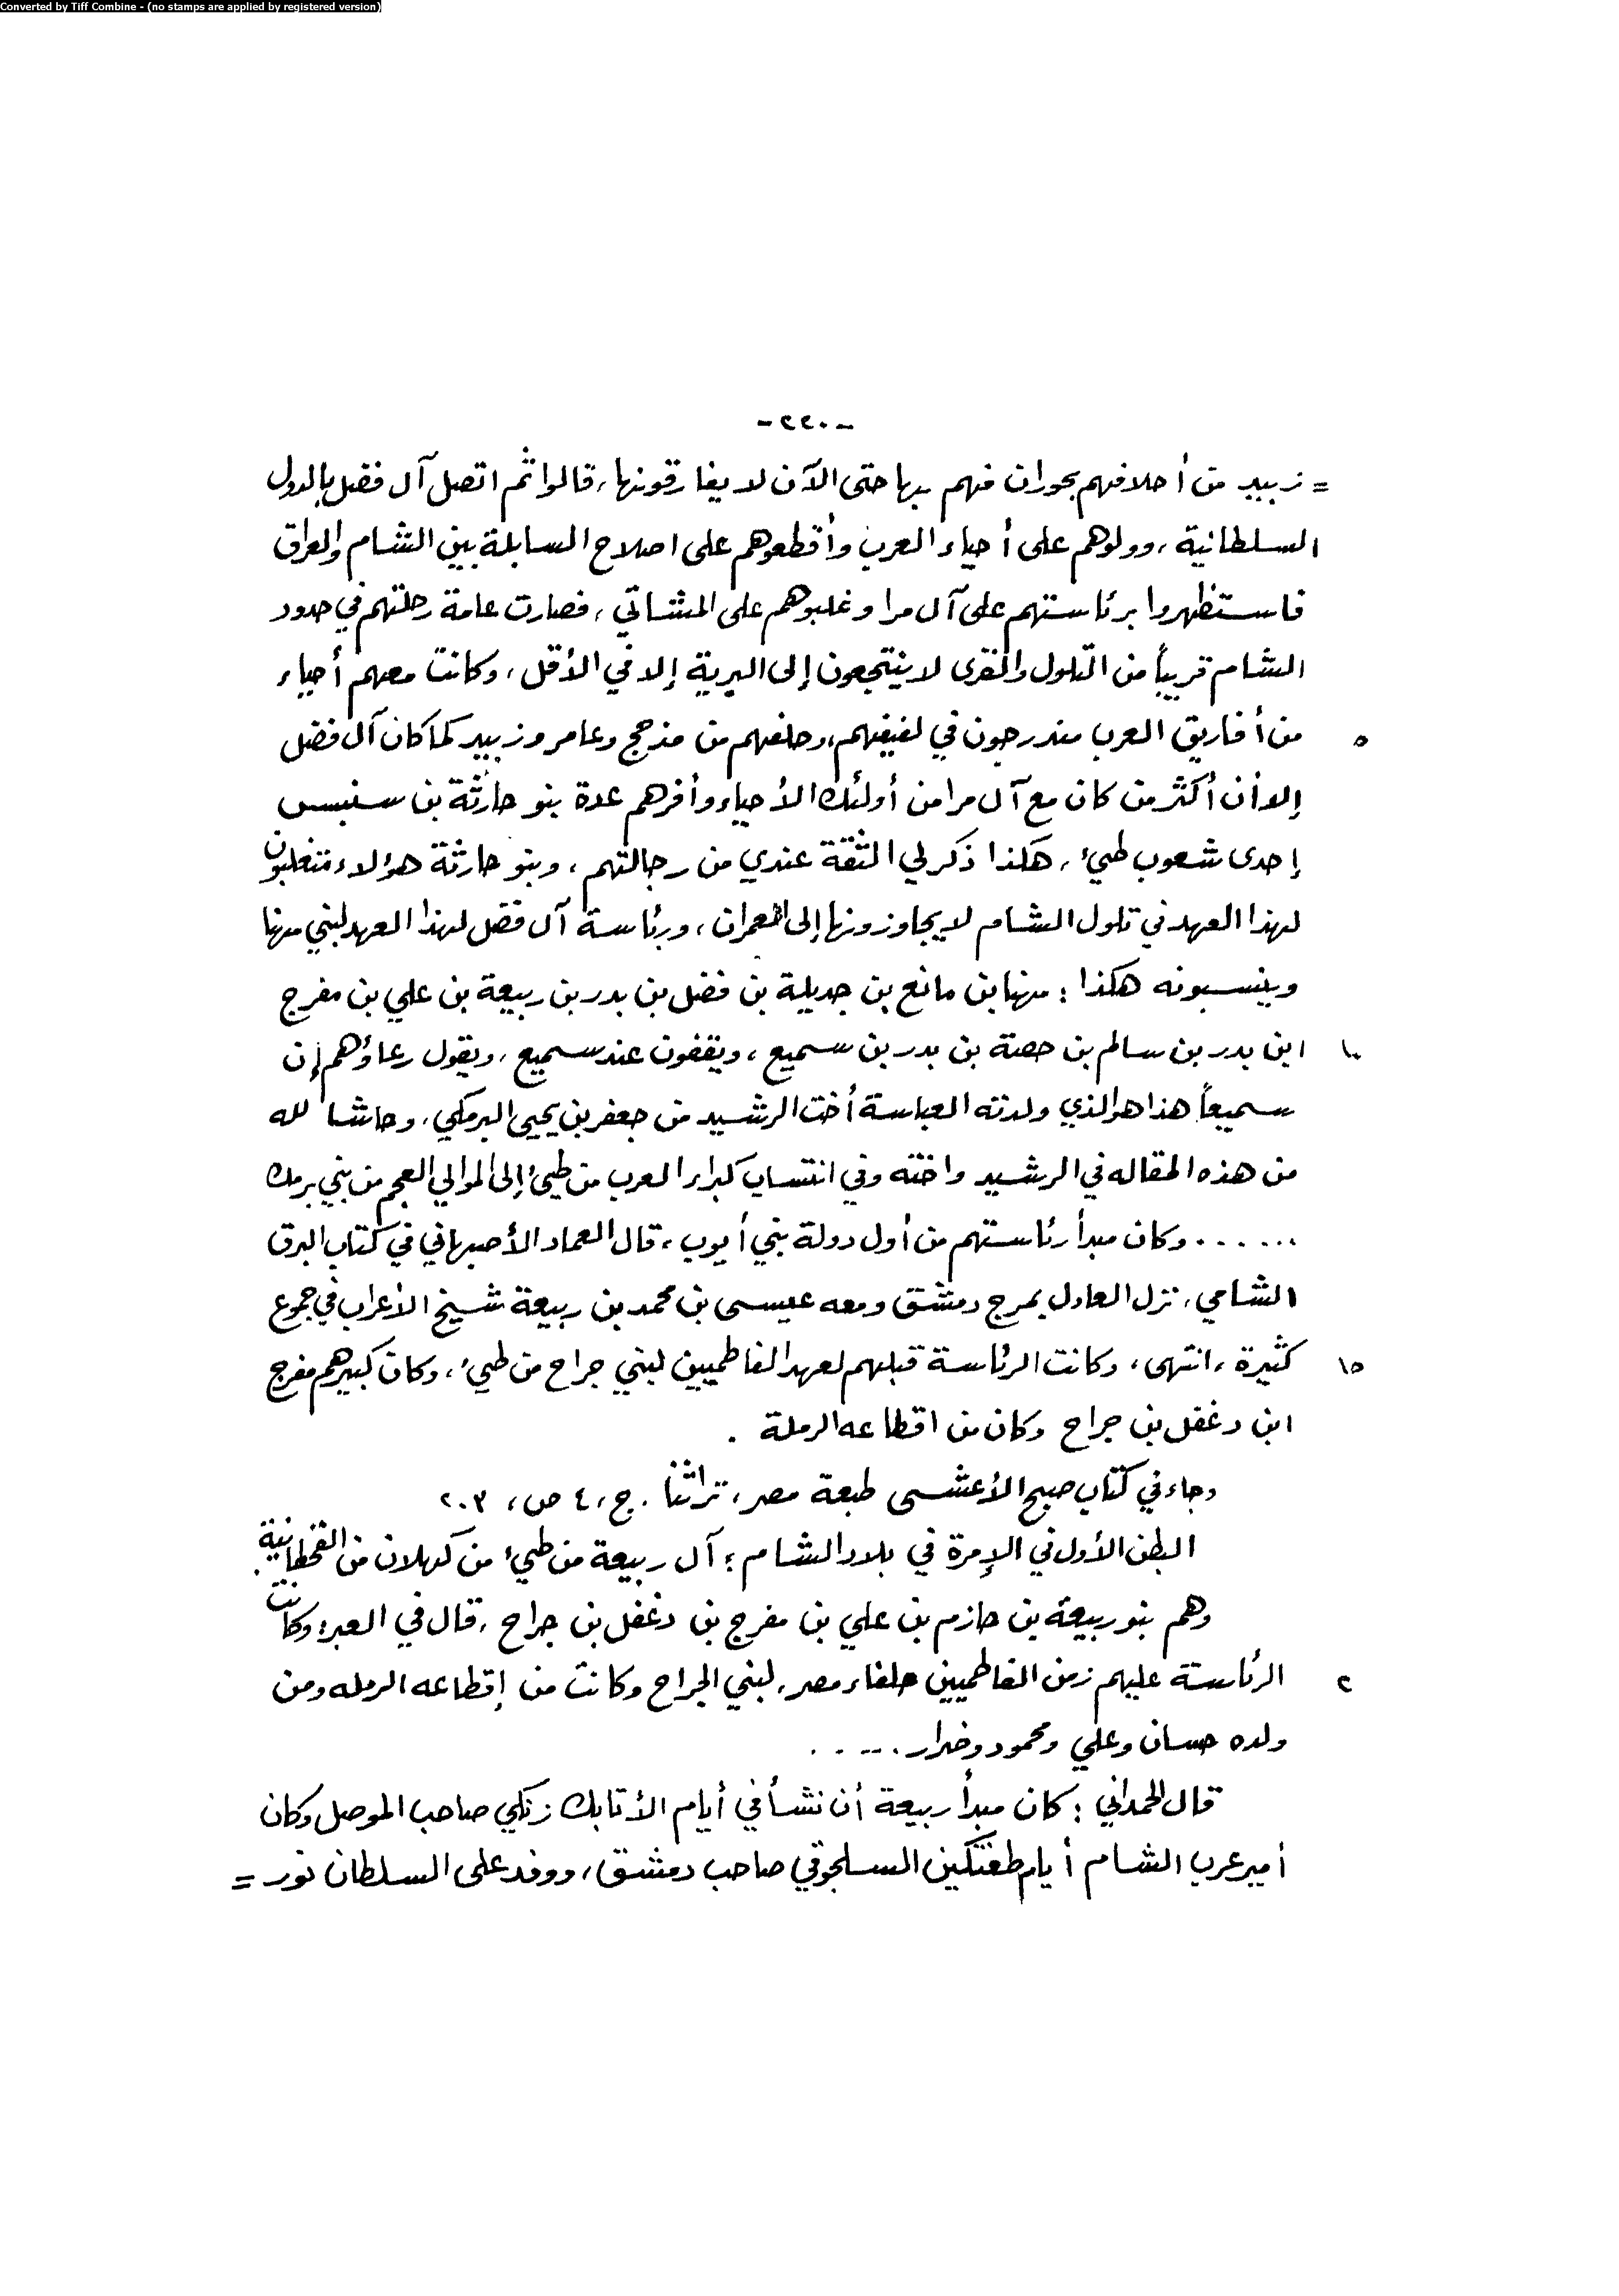 Converted by Tiff Combine - (no stamps are applied by registered version)
-٢٢٠-
= زبيد من أحلافهم بحوران فهم بها حتى الآن لا يفارقونها، قالوا ثم اتصل آل فضل بالدول
السلطانية، وولوهم على أحياء العرب وأقطعوهم على اصلاح السابلة بين الشام والعراق
فاستظهروا برئاستهم على آل مرا وغلبوهم على المشاتي، فصارت عامة رحلتهم في حدود
الشام قريباً من التلول والقرى لا ينتجعون إلى البرية إلا في الأقل، وكانت معهم أحياء
٥ من أفاريق العرب مندرجون في لفيفهم، وحلفهم من مذحج وعامر وزبيد كما كان آل فضل
إلا أن أكثر من كان مع آل مرا من أولئك الأحياء وأفرهم عدة بنو حارثة بن سنبس
إحدى شعوب طيء، هكذا ذكر لي الثقة عندي من رجالتهم، وبنو حارثة هؤلاء متغلبون
لهذا العهد في تلول الشام لا يجاوزونها إلى العمران، ورئاسة آل فضل لهذا العهد لبني مهنا
وينسبونه هكذا: مهنا بن مانع بن جديلة بن فضل بن بدر بن ربيعة بن علي بن مفرج
١٠ ابن بدر بن سالم بن حصة بن بدر بن سميع، ويقفون عند سميع، ويقول رعاؤهم إن
سميعاً هذا هو الذي ولدته العباسة أخت الرشيد من جعفر بن يحيى البرمكي، وحاشا لله
من هذه المقاله في الرشيد واخته وفي انتساب كبراء العرب من طيء إلى الموالي العجم من بني برمك
...... وكان مبدأ رئاستهم من أول دولة بني أيوب، قال العماد الأصبهاني في كتاب البرق
الشامي، نزل العادل بمرج دمشق ومعه عيسى بن محمد بن ربيعة شيخ الأعراب في جموع
١٥ كثيرة، انتهى، وكانت الرئاسة قبلهم لعهد الفاطميين لبني جراح من طيء، وكان كبيرهم مفرج
ابن دغفل بن جراح وكان من اقطاعه الرملة .
وجاء في كتاب صبح الأعشى طبعة مصر، تراثنا . ج، ٤ ص، ٢٠٣
البطن الأول في الإمرة في بلاد الشام؛ آل ربيعة من طيء من كهلان من القحطانية.
وهم بنو ربيعة بن حازم بن علي بن مفرج بن دغفل بن جراح، قال في العبر: وكانت
٢ الرئاسة عليهم زمن الفاطميين خلفاء مصر، لبني الجراح وكانت من إقطاعه الرمله ومن
ولده حسان وعلي ومحمود وضرار.....
قال الحمداني: كان مبدأ ربيعة أن نشأ في أيام الأتابك زنكي صاحب الموصل وكان
أمير عرب الشام أيام طغتكين السلجوقي صاحب دمشق، ووفد على السلطان نور =